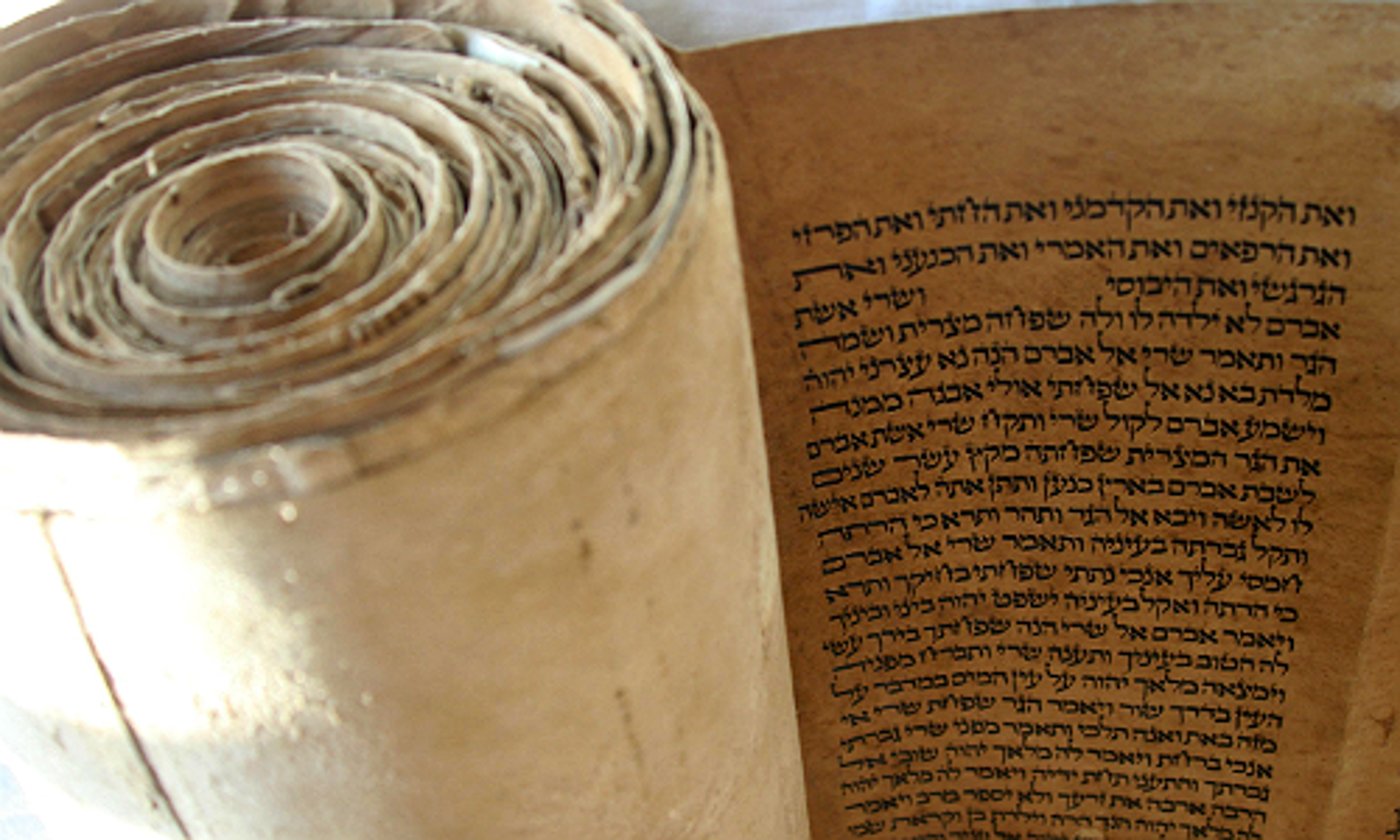 ואת הקנזי ואת הקדמני ואת החתי ואת הפרזי
ואת הרפאים ואת האמרי ואת הכנעני ואת
הגרגשי ואת היבוסי ושרי אשת
אברם לא ילדה לו ולה שפחה מצרית ושמה
הגר ותאמר שרי אל אברם הנה נא עצרני יהוה
מלדת בא נא אל שפחתי אולי אבנה ממנה
וישמע אברם לקול שרי ותקח שרי אשת אברם
את הגר המצרית שפחתה מקץ עשר שנים
לשבת אברם בארץ כנען ותתן אתה לאברם אישה
לו לאשה ויבא אל הגר ותהר ותרא כי הרתה
ותקל גברתה בעיניה ותאמר שרי אל אברם
חמסי עליך אנכי נתתי שפחתי בחיקך ותרא
כי הרתה ואקל בעיניה ישפט יהוה ביני וביניך
ויאמר אברם אל שרי הנה שפחתך בידך עשי
לה הטוב בעיניך ותענה שרי ותברח מפניה
וימצאה מלאך יהוה על עין המים במדבר על
העין בדרך שור ויאמר הגר שפחת שרי אי
מזה באת ואנה תלכי ותאמר מפני שרי גברתי
אנכי ברחת ויאמר לה מלאך יהוה שובי אל
גברתך והתעני תחת ידיה ויאמר לה מלאך יהוה
הרבה ארבה את זרעך ולא יספר מרב ויאמר
לה מלאך יהוה הנך הרה וילדת בן וקראת שמו